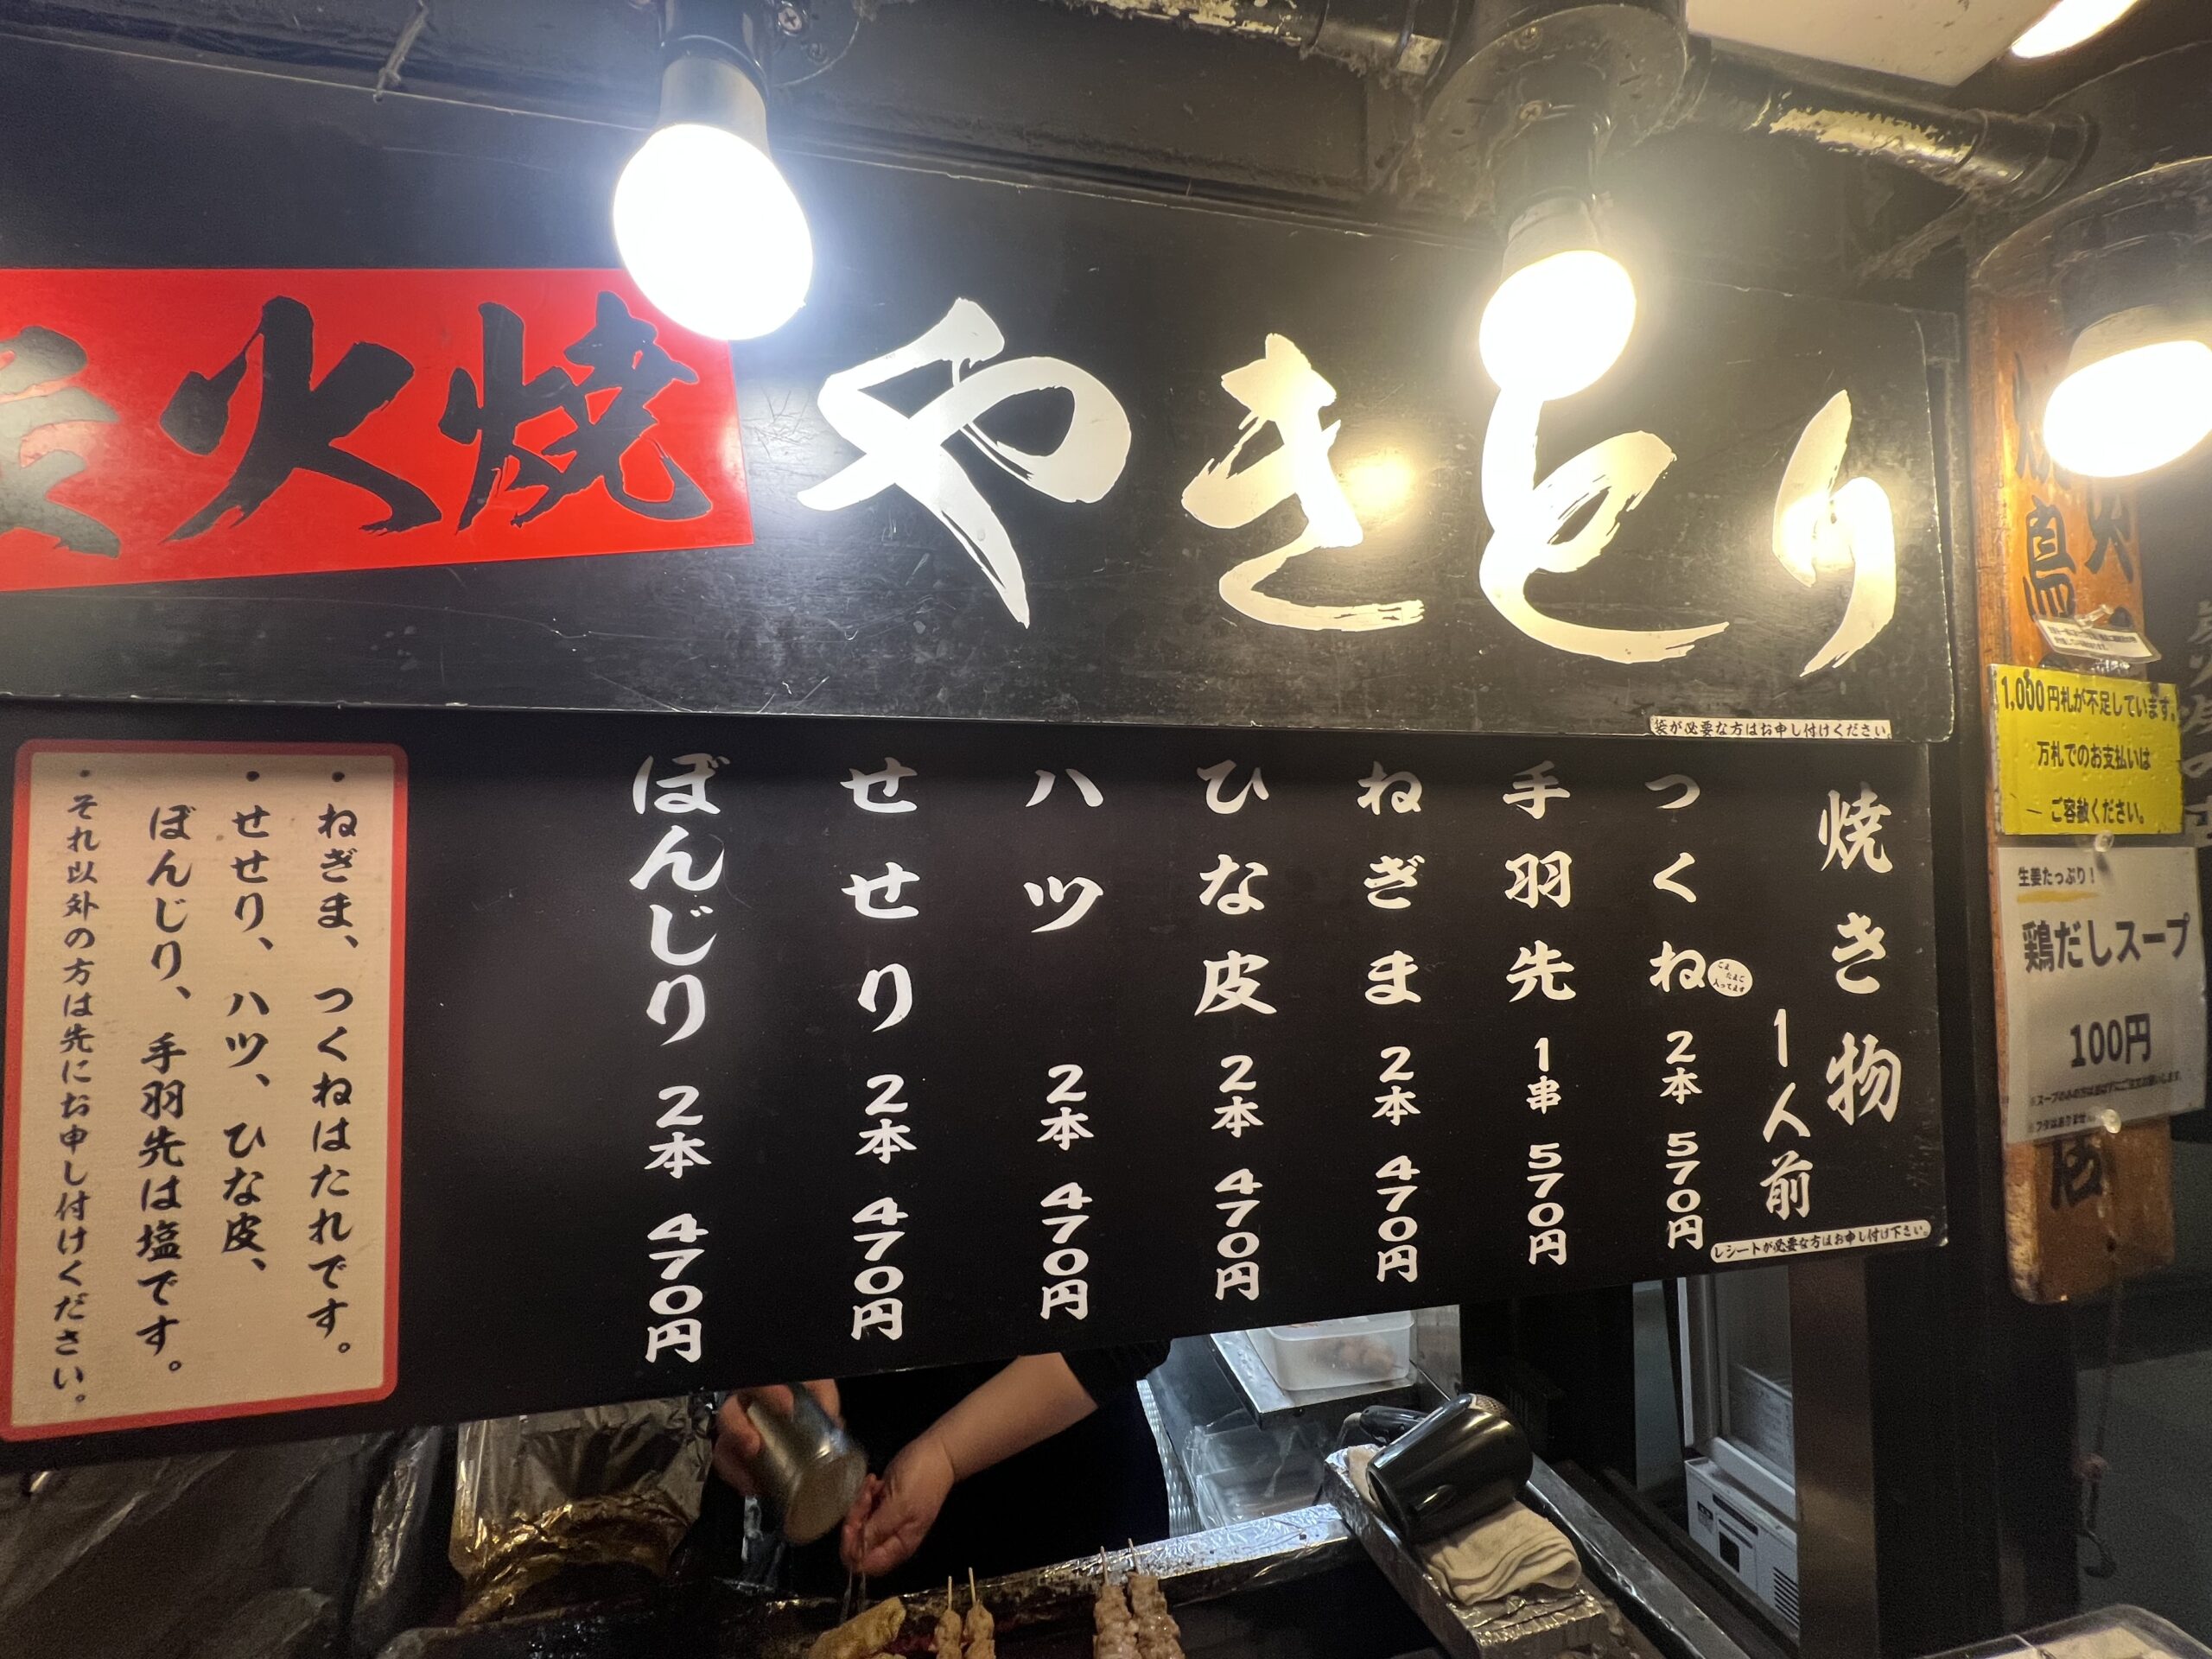 火焼
やきとり
袋が必要な方はお申し付けください。
焼き物
1人前
つくね 2本 570円
手羽先 1串 570円
ねぎま 2本 470円
ひな皮 2本 470円
ハツ 2本 470円
せせり 2本 470円
ぼんじり 2本 470円
レシートが必要な方はお申し付け下さい。
・ねぎま、つくねはたれです。
・せせり、ハツ、ひな皮、
ぼんじり、手羽先は塩です。
・それ以外の方は先にお申し付けください。
1,000円札が不足しています。
万札でのお支払いは
ご容赦ください。
生姜たっぷり!
鶏だしスープ
100円